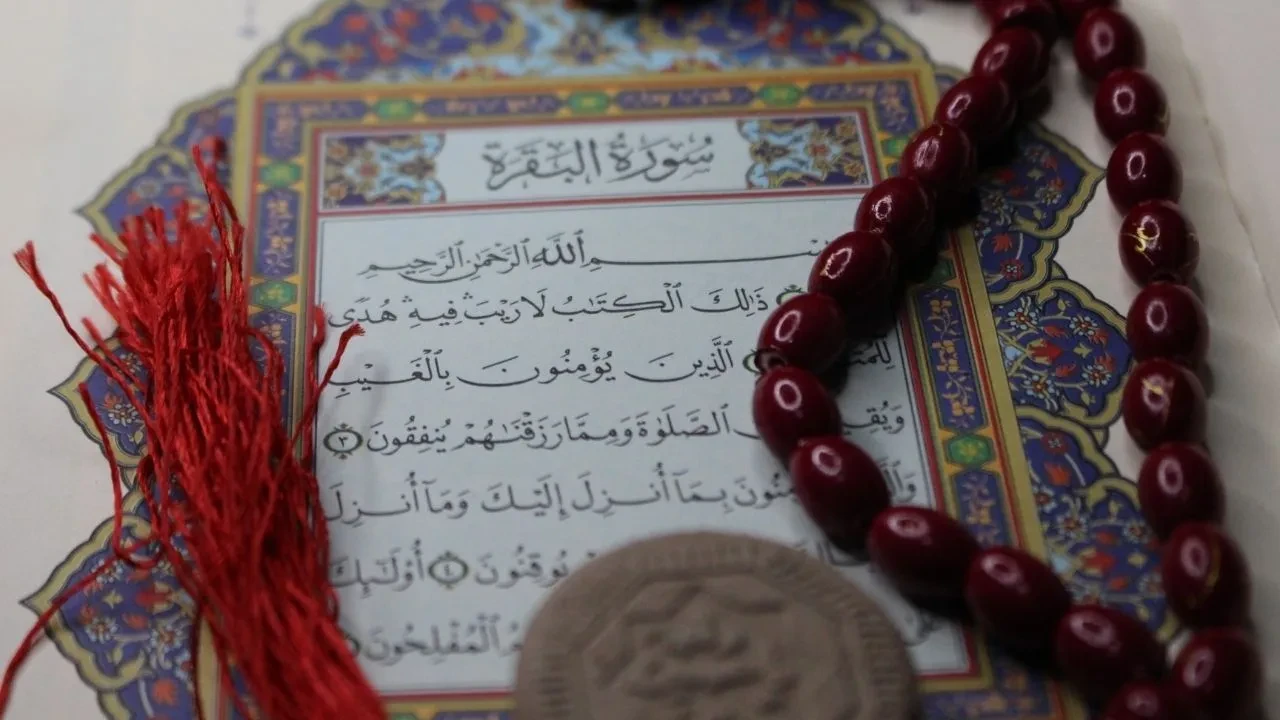 سُورَةُ البَقَرَة
بِسْمِ ٱللَّهِ ٱلرَّحْمَٰنِ ٱلرَّحِيمِ
ذَٰلِكَ ٱلْكِتَٰبُ لَا رَيْبَ ۛ فِيهِ ۛ هُدًى
ٱلَّذِينَ يُؤْمِنُونَ بِٱلْغَيْبِ
ٱلصَّلَوٰةَ وَمِمَّا رَزَقْنَٰهُمْ يُنفِقُونَ ٣
بِمَآ أُنزِلَ إِلَيْكَ وَمَآ أُنزِلَ
يُوقِنُونَ ٤ أُو۟لَٰٓئِكَ
ٱلْمُفْلِحُونَ